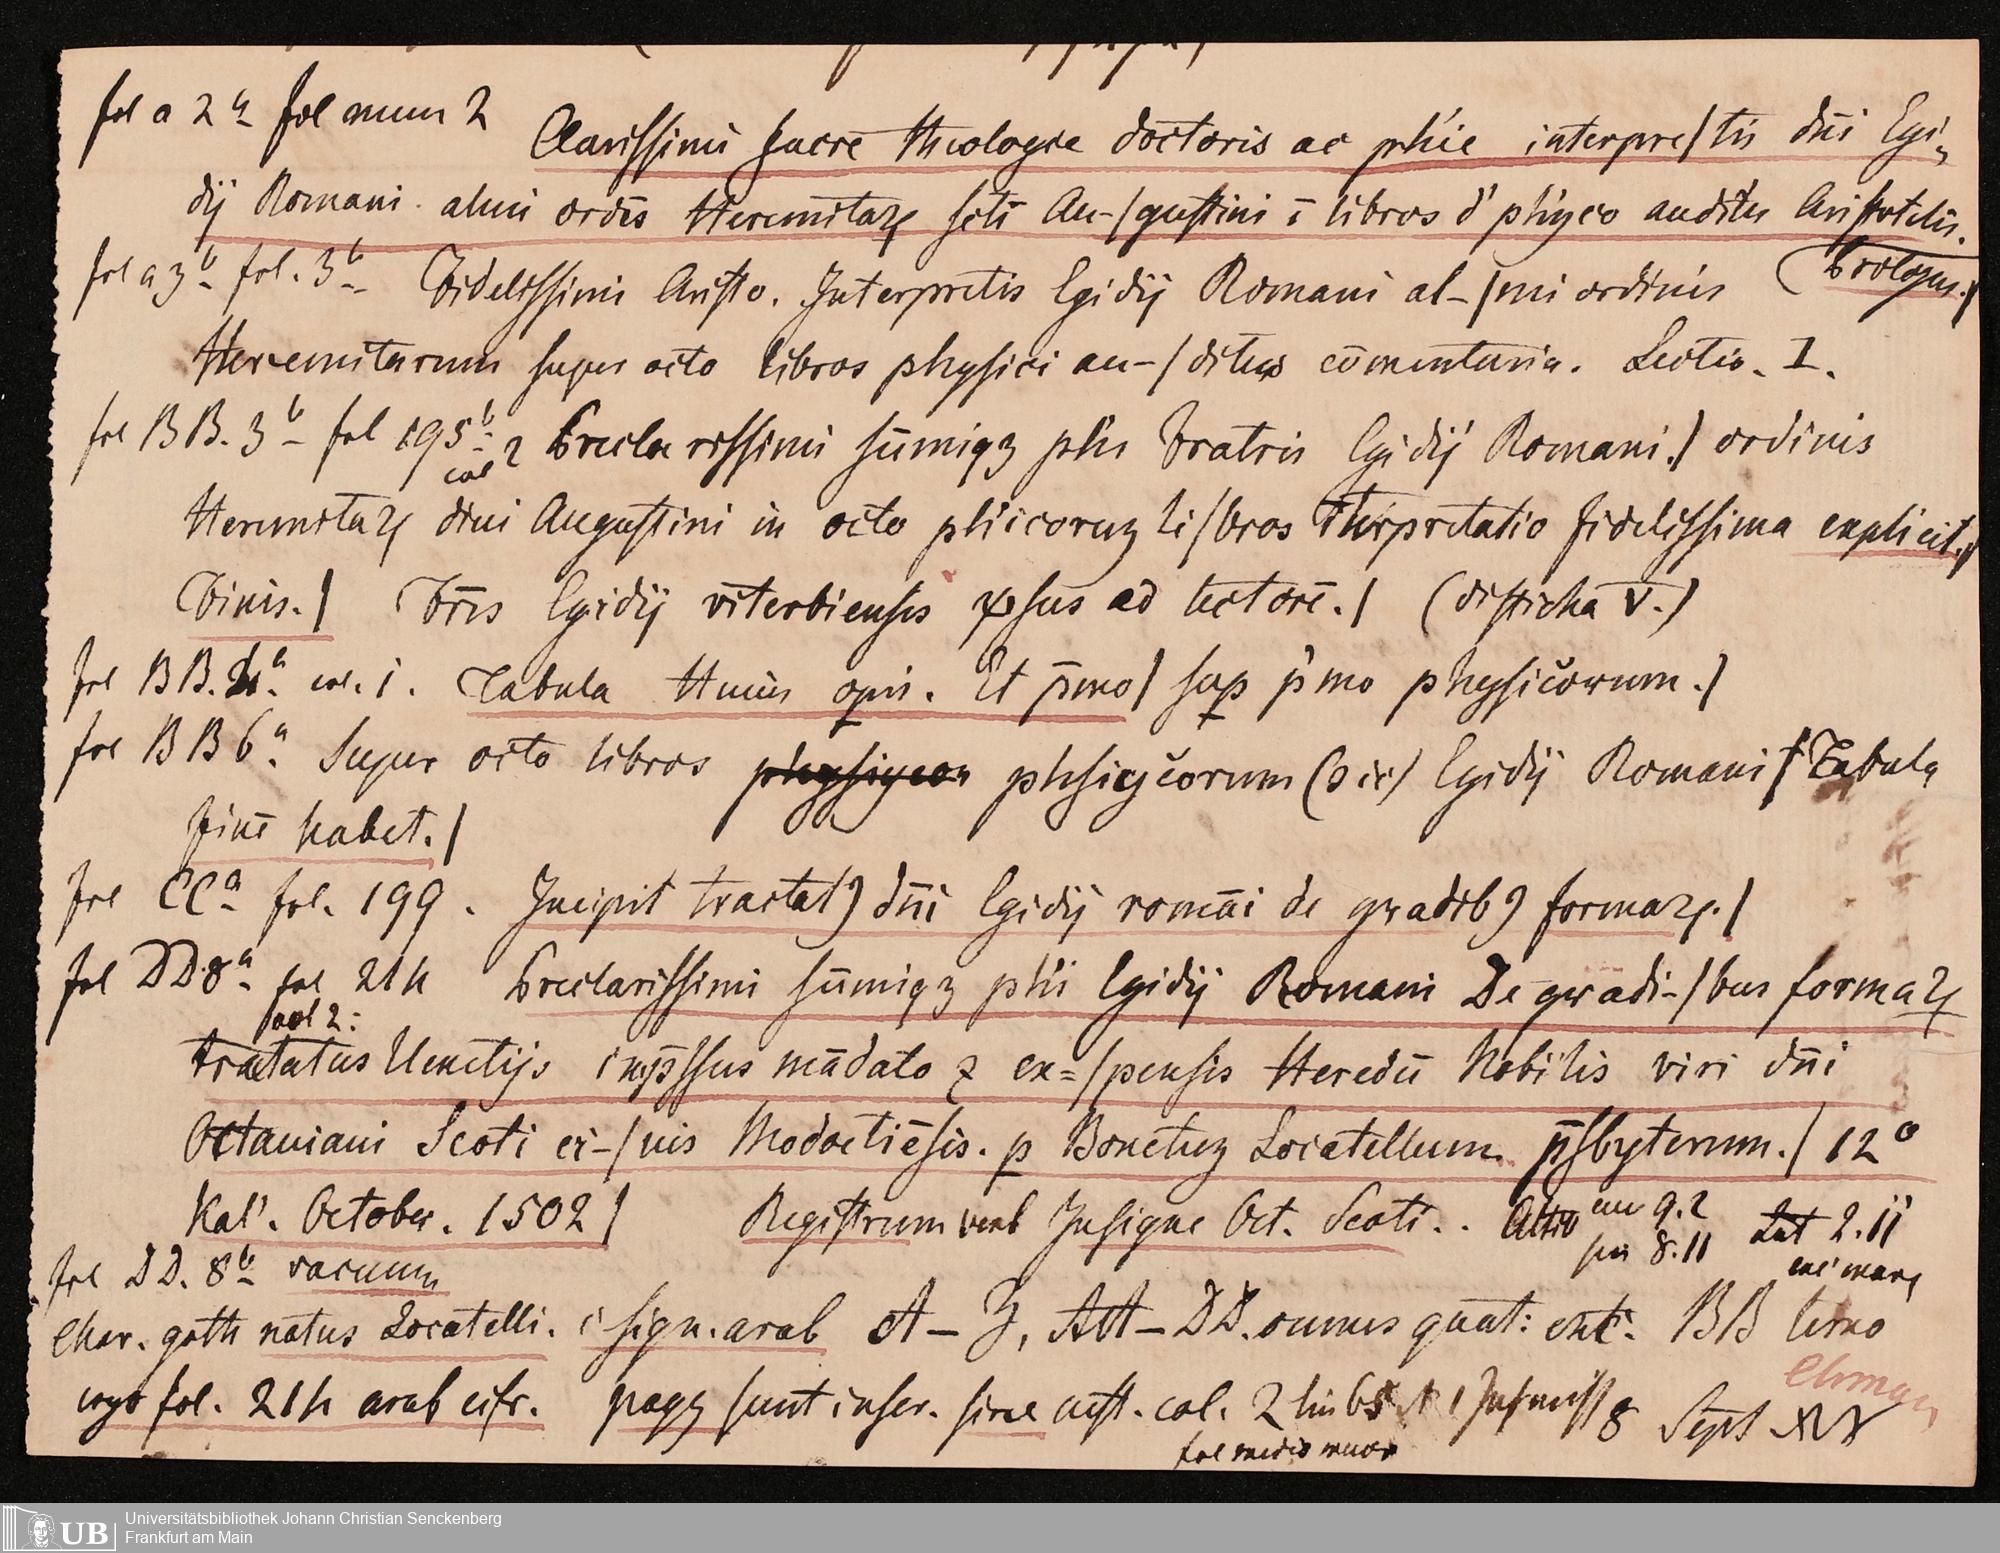 fol a 2ᵃ fol num 2 Clarissimi sacre theologie doctoris ac phie interpre/tis dn̄i Egi-
dij Romani almi ordīs Heremitaꝝ scti Au-/gustini ī libros d' phyco auditu Aristotelis.
fol a 3ᵇ fol. 3ᵇ Fidelissimi Aristo. Interpretis Egidij Romani al-/mi ordinis (Prologus./
Heremitarum super octo libros physici au-/ditus cōmentaria. Lectio. I.
fol BB. 3ᵇ fol 195ᵇ col 2 Preclarissimi sūmiqꝫ phi Fratris Egidij Romani./ ordinis
Heremitaꝝ diui Augustini in octo phicoruꝫ li/bros īterpretatio fidelissima explicit./
Finis./ Fr̄is Egidij viterbiensis versus ad lectorē./ (disticha V.)
fol BB. 4ᵃ col. 1. Tabula Huius opis. Et p̄mo/ suꝑ p̄mo physicorum./
fol BB 6ᵃ Super octo libros phsicycorum (sic) Egidij Romani / Tabula
finē habet./
fol CCᵃ fol. 199. Incipit tractatꝰ dn̄i Egidij romāi de gradibꝰ formaꝝ./
fol DD 8ᵃ fol 214 Preclarissimi sūmiqꝫ phi Egidij Romani De gradi-/bus formaꝝ
col 2:
tractatus Uenetijs imp̄ssus mādato ⁊ ex=/pensis Heredū Nobilis viri dn̄i
Octauiani Scoti ci-/uis Modoetiēsis. ꝑ Bonetuꝫ Locatellum p̄sbyterum./ 12°
Kal'. October. 1502/ Registrum Insigne Oct. Scoti.. Altio cu 9.2 Lat 2.11
sin 8.11
fol DD. 8ᵇ vacuum
Char. goth natus Locatelli. c sign. arab A – Z, AA – DD. omnes quat: exc. BB terno
ergo fol. 214 arab cifr. pagg sunt inscr. sine cust. col. 2 lin 65 8 Sept
fol medio